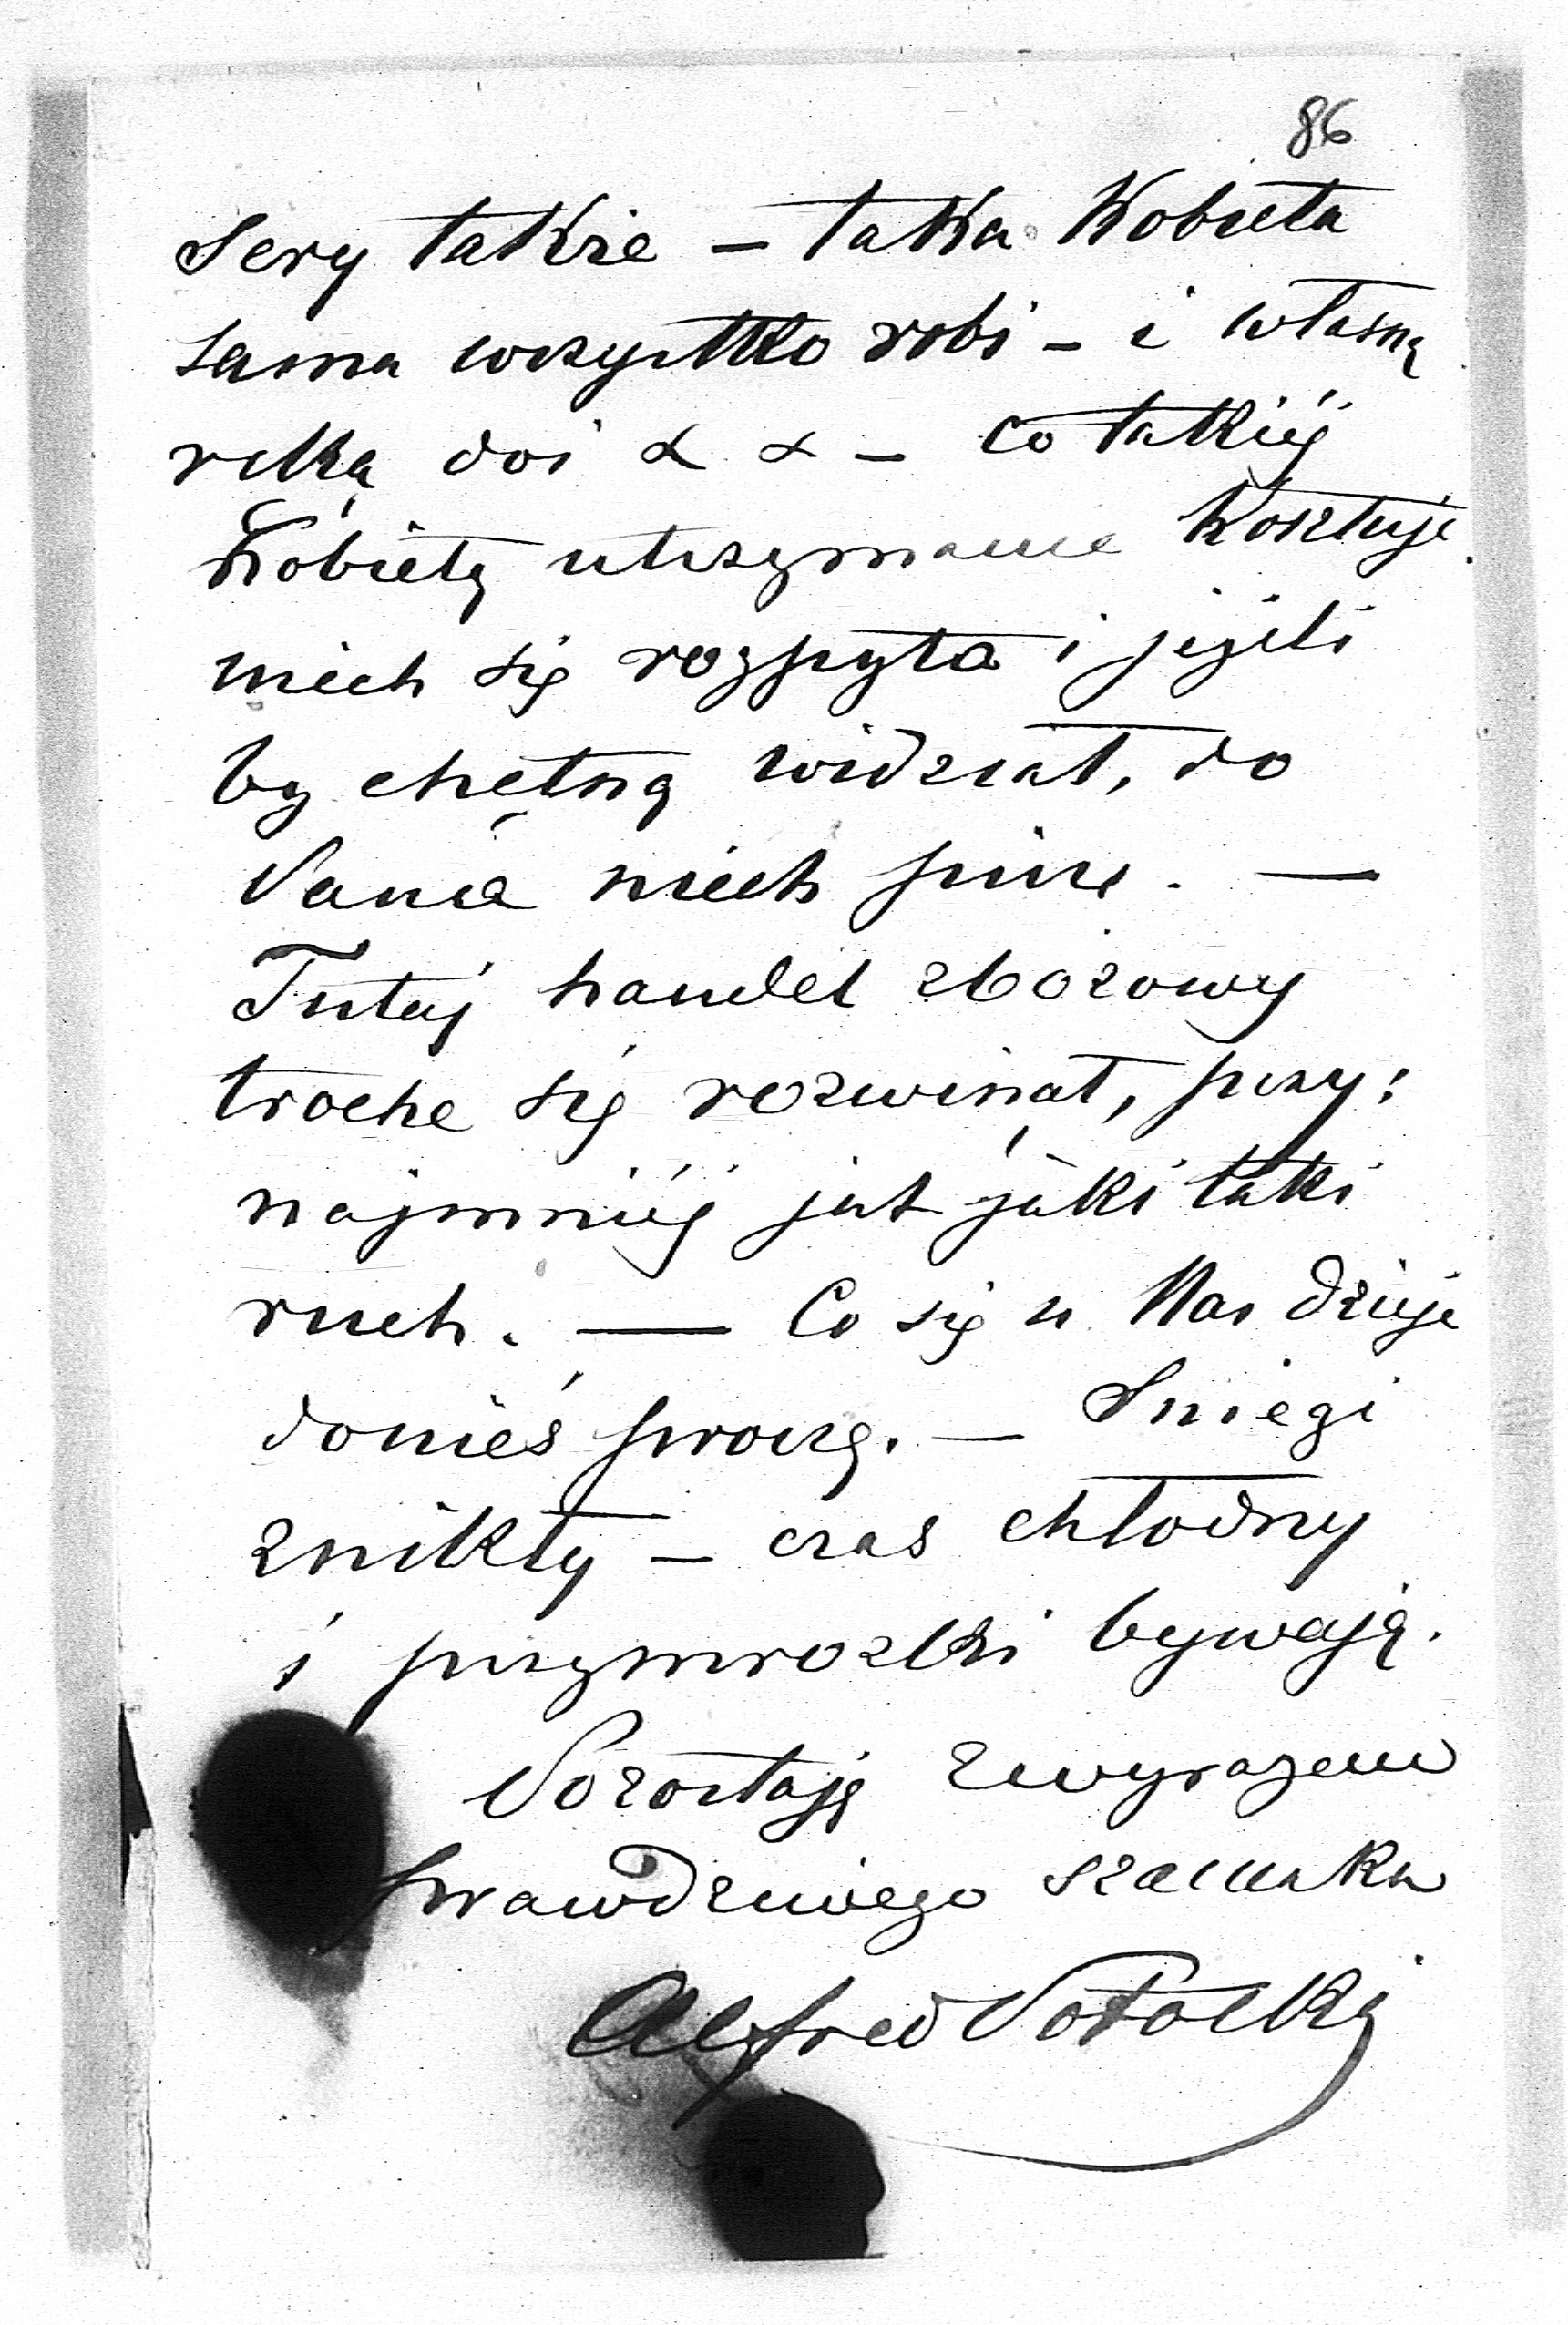 86
sery także – taka Kobieta
sama wszystko robi – i własną
ręką doi & & – co takiéj
Kobiety utrzymanie kosztuje
niech się rozpyta i jeżeli
by chętną widział, do
Pana niech pisze. —
Tutaj handel zbożowy
troche się rozwinął, przy:
najmniéj jest jaki taki
ruch. — Co się u Was dzieje
donieś proszę. — Sniegi
znikły – czas chłodny
i przymrozki bywają.
Pozostaję z wyrazem
prawdziwego szacunku
Alfred Potocki